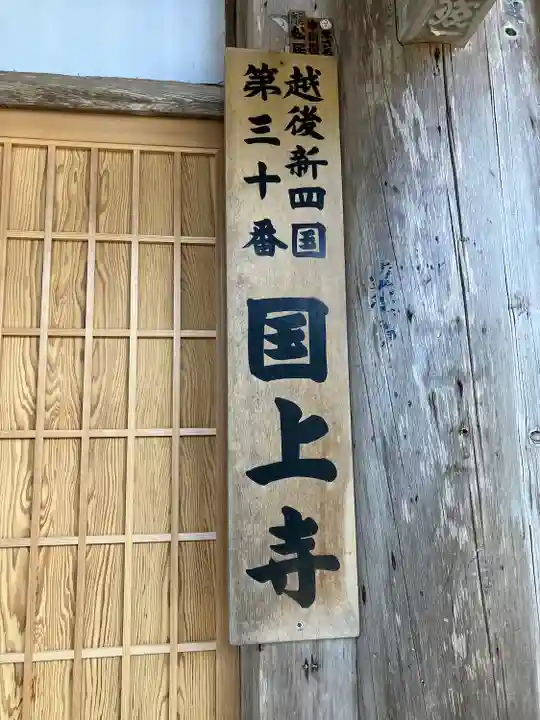 越後新四国
第三十番
国上寺